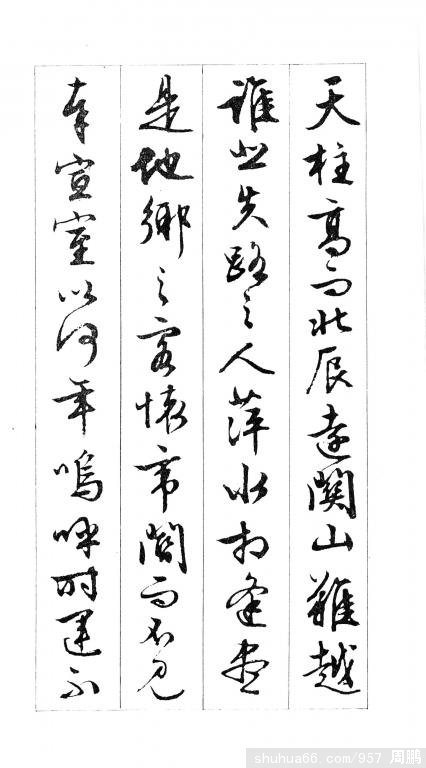 天柱高而北辰遠關山難越
誰悲失路之人萍水相逢盡
是他鄉之客懷帝閽而不見
奉宣室以何年嗚呼時運不
shuhua66.com/957 周鹏